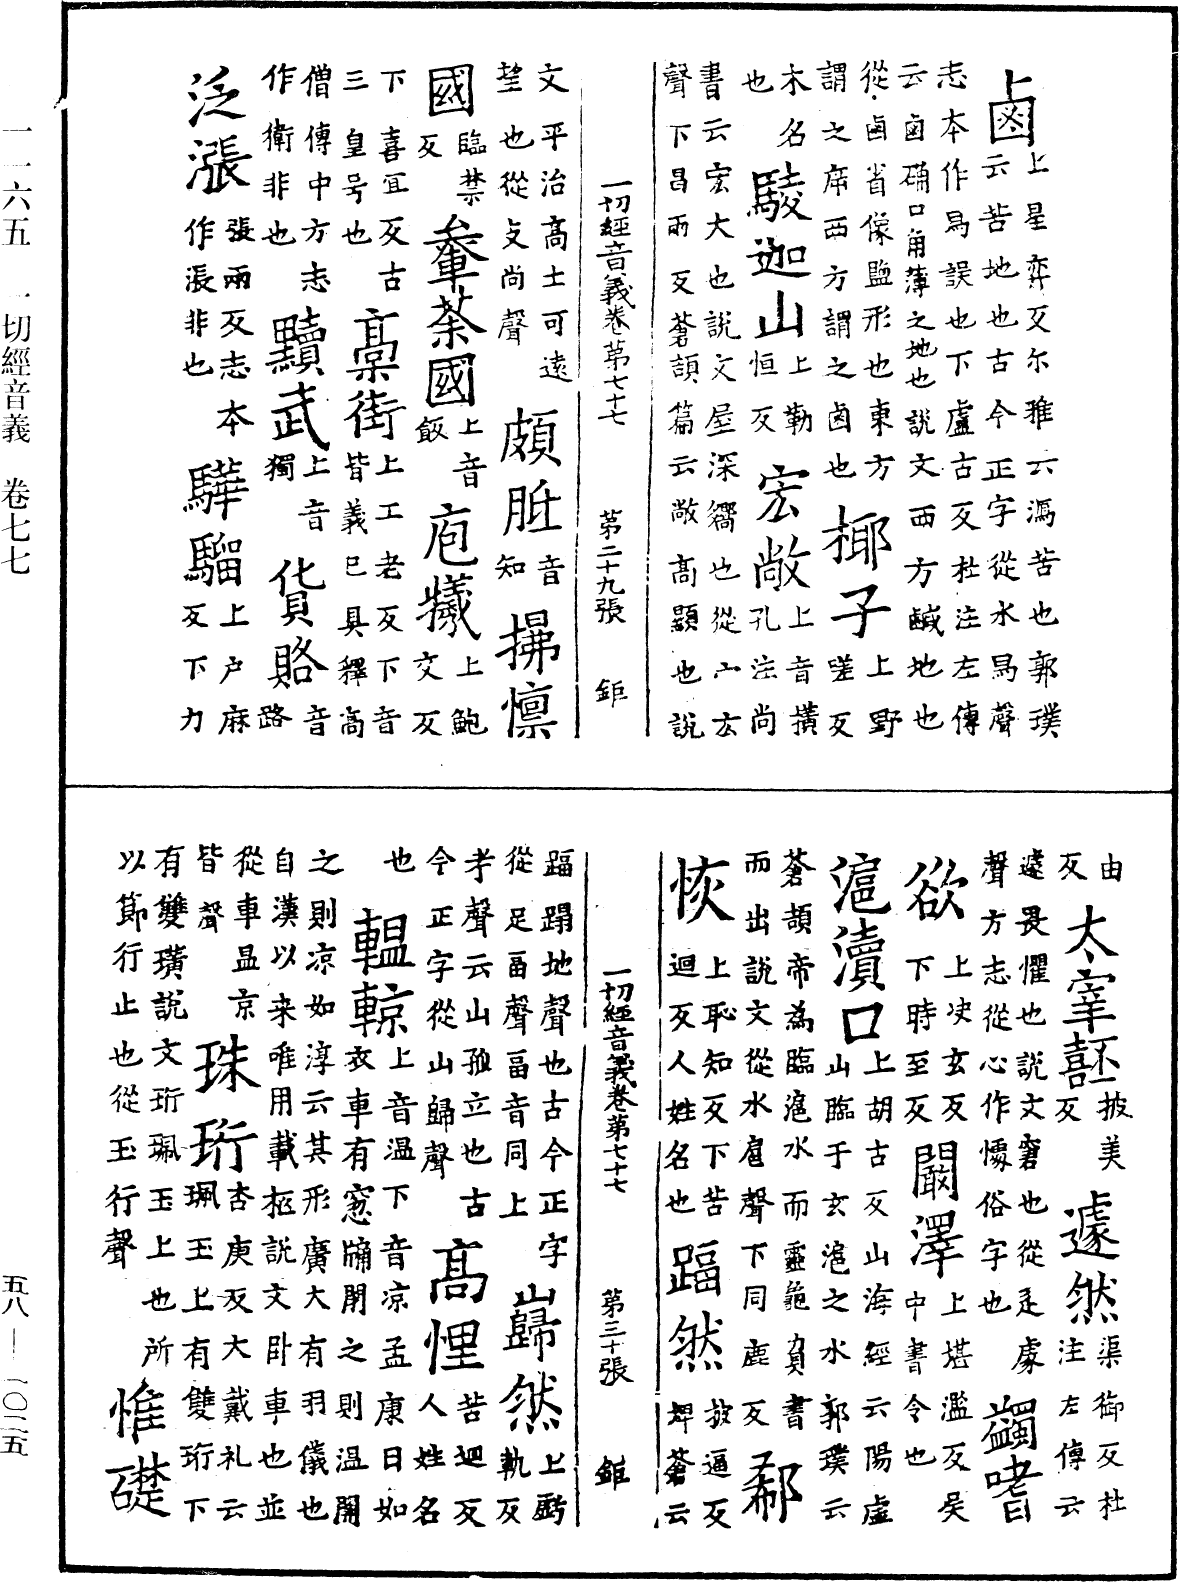 鹵上星弈反尔雅云潟苦也郭璞
云苦地也古今正字從水舄聲
志本作舄誤也下盧古反杜注左傳
云鹵确口角薄之地也說文西方鹹地也
從鹵省像鹽形也東方
謂之㡿西方謂之鹵也 椰子上野嗟反
木名也 駿迦山上勒恒反 宏敞上音橫孔注尚
書云宏大也說文屋深響也從宀厷
聲下昌兩反蒼頡篇云敞高顯也說
一切經音義卷第七十七 第二十九張 鉅
文平治高士可遠
望也從攴尚聲 頗胝音知 拂懍
臨禁反 國 羍荼國上音飯 庖犧上鮑交反
下喜冝反古
三皇号也 藁街上工老反下音皆義已具釋高
僧傳中方志
作衛非也 黷武上音獨 貨賂音路
泛漲張兩反志本作漲非也 驊騮上户麻反下力
由反 太宰嚭披美反 遽然渠御反杜注左傳云
遽畏懼也說文窘也從辵豦
聲方志從心作懅俗字也 蠲嗜
欲上決玄反下時至反 闞澤上堪濫反吳中書令也
滬瀆口上胡古反山海經云陽虛山臨于玄滬之水郭璞云
蒼頡帝為臨滬水而靈龜負書
而出說文從水扈聲下同鹿反 郗
恢上恥知反下苦迴反人姓名也 踾然披逼反埤蒼云
一切經音義卷第七十七 第三十張 鉅
踾蹋地聲也古今正字
從足畐聲畐音同上 巋然上虧軌反
考聲云山孤立也古
今正字從山歸聲 高悝苦迴反人姓名
也 轀輬上音温下音凉孟康日如衣車有窓牖閉之則温開
之則凉如淳云其形廣大有羽儀也
自漢以来唯用載柩說文卧車也並
從車昷京皆聲 珠珩杏庚反大戴礼云珮玉上有雙珩下
有雙璜說文珩珮玉上也所
以節行止也從玉行聲 惟礎
一一六五 一切經音義 卷七七
五八—一〇二五